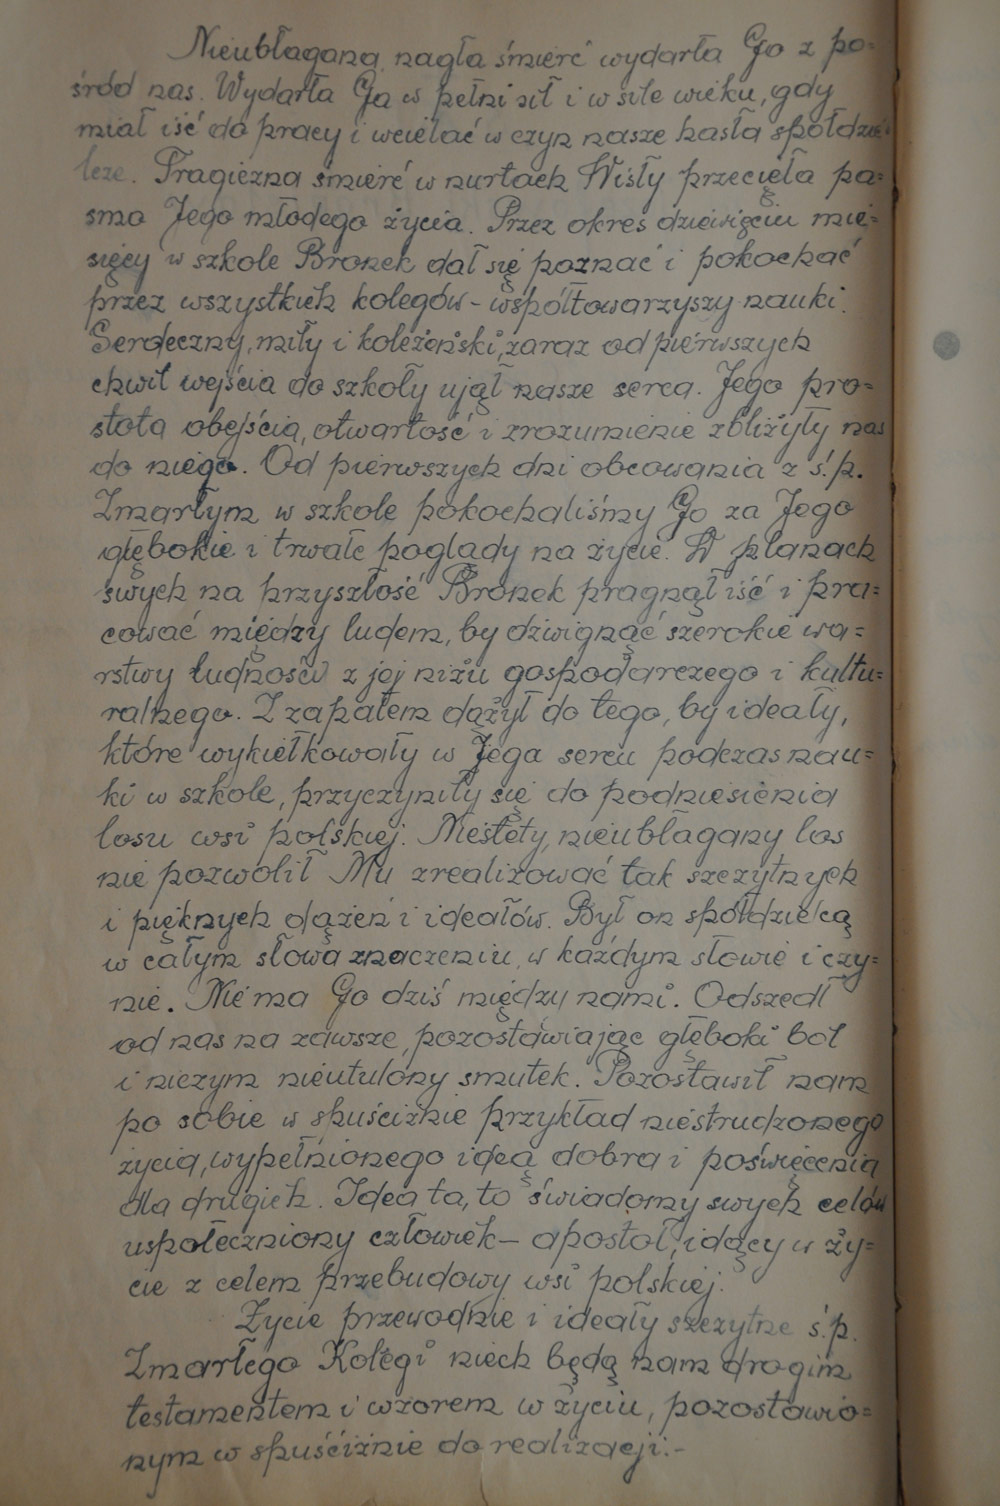 Nieubłagana nagła śmierć wydarła Go z po=
śród nas. Wydarła Go w pełni sił i w sile wieku, gdy
miał iść do pracy i wcielać w czyn nasze hasła spółdziel
cze. Tragiczna śmierć w nurtach Wisły przecięła pa=
smo Jego młodego życia. Przez okres dziewięciu mie=
sięcy w szkole Bronek dał się poznać i pokochać
przez wszystkich kolegów - współtowarzyszy nauki.
Serdeczny, miły i koleżeński, zaraz od pierwszych
chwil wejścia do szkoły ujął nasze serca. Jego pro=
stota obejścia, otwartość i zrozumienie zbliżyły nas
do niego. Od pierwszych dni obcowania z ś.p.
Zmarłym w szkole pokochaliśmy Go za Jego
głębokie i trwałe poglądy na życie. W planach
swych na przyszłość Bronek pragnął iść i pra=
cować między ludem, by dźwignąć szerokie wa=
rstwy ludności z jej niżu gospodarczego i kultu=
ralnego. Z zapałem dążył do tego, by ideały,
które wykiełkowały w Jego sercu podczas nau=
ki w szkole, przyczyniły się do podniesienia
losu wsi polskiej. Niestety, nieubłagany los
nie pozwolił Mu zrealizować tak szczytnych
i pięknych dążeń i ideałów. Był on spółdzielcą
w całym słowa znaczeniu, w każdym słowie i czy=
nie. Nie ma Go dziś między nami. Odszedł
od nas na zawsze, pozostawiając głęboki ból
i niczym nieutulony smutek. Pozostawił nam
po sobie w spuściźnie przykład niestrudzonego
życia, wypełnionego ideą dobra i poświęcenia
dla drugich. Idea ta, to świadomy swych celów
uspołeczniony człowiek - apostoł, idący w ży=
cie z celem przebudowy wsi polskiej.
Życie przewodnie i ideały szczytne ś.p.
Zmarłego Kolegi niech będą nam drogim
testamentem i wzorem w życiu, pozostawio=
nym w spuściźnie do realizacji.-